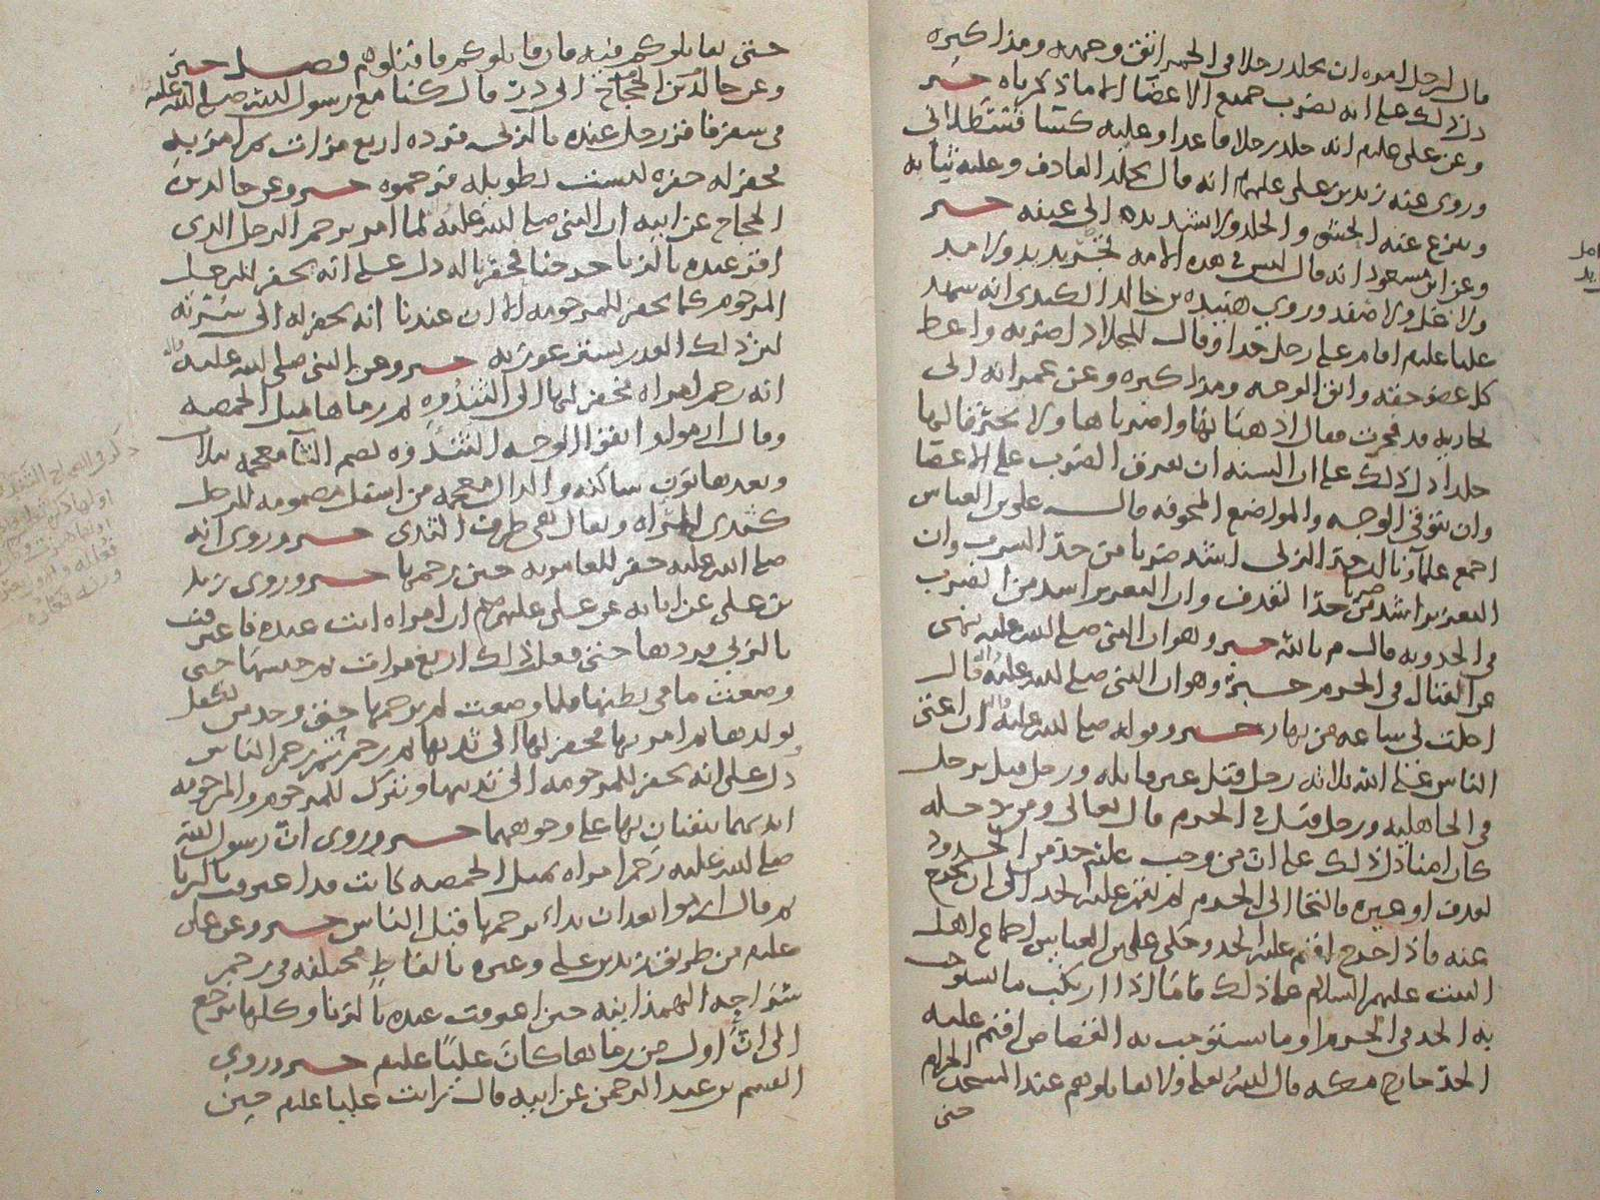 قال لرجل امره ان يجلد رجلا في الخمر اتق وجهه ومذاكيره
دل ذلك على انه يضرب جميع الاعضا الا ما ذكرناه خبر
وعن علي عليلم انه جلد رجلا قاعدا وعليه كسا قسطلاني
وروى عنه زيد بن علي عليهم انه قال يجلد القاذف وعليه ثيابه
وينزع عنه الحشو والجلد ولا تشد يده الى عنقه خبر
وعن ابن مسعود انه قال ليس في هذه الامه تجريد ولا مد
ولا غل ولا صفد وروى هنيده بن خالد الكندي انه شهد
عليا عليلم اقام على رجل حدا وقال للجلاد اضربه واعط
كل عضو حقه واتق الوجه ومذاكيره وعن عمر انه اتى
بجاريه قد فجرت فقال اذهبا بها واضرباها ولا تخرقا لها
جلدا دل ذلك على ان السنه ان يفرق الضرب على الاعضا
وان يتوقى الوجه والمواضع المخوفه قال علي بن العباس
اجمع علمآؤنا ان حد الزنى اشد ضربا من حد الشرب وان
التعزير اشد ضربا من حد القذف وان التعزير اشد من الضرب
في الحد وبه قال م بالله خبر وهو ان النبي صلى الله عليه نهى
عن القتال في الحرم خبر وهو ان النبي صلى الله عليه قال
احلت لي ساعه من نهار خبر وقوله صلى الله عليه ان اعتى
الناس على الله ثلاثه رجل قتل غير قاتله ورجل قتل بدخل
في الجاهليه ورجل قتل في الحرم قال تعالى ومن دخله
كان امنا دل ذلك على ان من وجب عليه حد من الحدود
لقذف او غيره فالتجا الى الحرم لم يقم عليه الحد الى ان يخرج
عنه فاذا خرج اقيم عليه الحد وحكى علي بن العباس اجماع اهل
البيت عليهم السلام على ذلك فاما اذا ارتكب ما يستوجب
به الحد في الحرم او ما يستوجب به القصاص اقيم عليه
الحد خارج مكه قال الله تعالى ولا تقاتلوهم عند المسجد الحرام
حتى
حتى يقاتلوكم فيه فان قاتلوكم فاقتلوهم فصل خبر
وعن خالد بن الحجاج الى ذر قال كنا مع رسول الله صلى الله عليه
في سفر فاقر رجل عنده بالزنى فرده اربع مرات ثم امر به
فحفر له حفره ليست بطويله فرجموه خبر وعن خالد بن
الحجاج عن ابيه ان النبي صلى الله عليه لما امر برجم الرجل الذي
اقر عنده بالزنا خرجنا فحفرنا له دل على انه يحفر للرجل
المرجوم كما يحفر للمرجومه الا ان عندنا انه يحفر له الى سرته
لان ذلك القدر يستر عورته خبر وعن النبي صلى الله عليه واله
انه رجم امراه فحفر لها الى الثندوه ثم رماها بمثل الحمصه
وقال ارموا واتقوا الوجه الثندوه بضم الثآ معجمه بثلاث
وبعدها نون ساكنه والدال معجمه من اسفل مضمومه للرجل
كثدي المراه ويقال هي طرف الثدي خبر وروي انه
صلى الله عليه حفر للعامريه حين رجمها خبر وروى زيد
بن علي عن ابايه عن علي عليهم ان امراه اتت عنده فاعترفت
بالزنى فردها حتى فعل ذلك اربع مرات ثم حبسها حتى
وضعت ما في بطنها فلما وضعت لم يرجمها حتى وجد من يكفل
بولدها ثم امر بها فحفر لها الى ثدييها ثم رجم ثم رجم الناس
دل على انه يحفر للمرجومه الى ثدييها ويترك للمرجوم والمرجومه
ايديهما يتقيان بها على وجوههما خبر وروي ان رسول الله
صلى الله عليه رجم امراه بمثل الحمصه كانت قد اعترفت بالزنا
ثم قال ارموا بعد ان بداء برجمها قبل الناس خبر وعن علي
عليلم من طريق زيد بن علي وغيره بالفاظ مختلفه في رجم
شراحه الهمذانيه حين اعترفت عنده بالزنا وكلها ترجع
الى ان اول من رماها كان عليا عليلم خبر وروى
القسم بن عبد الرحمن عن ابيه قال رايت عليا عليلم حين